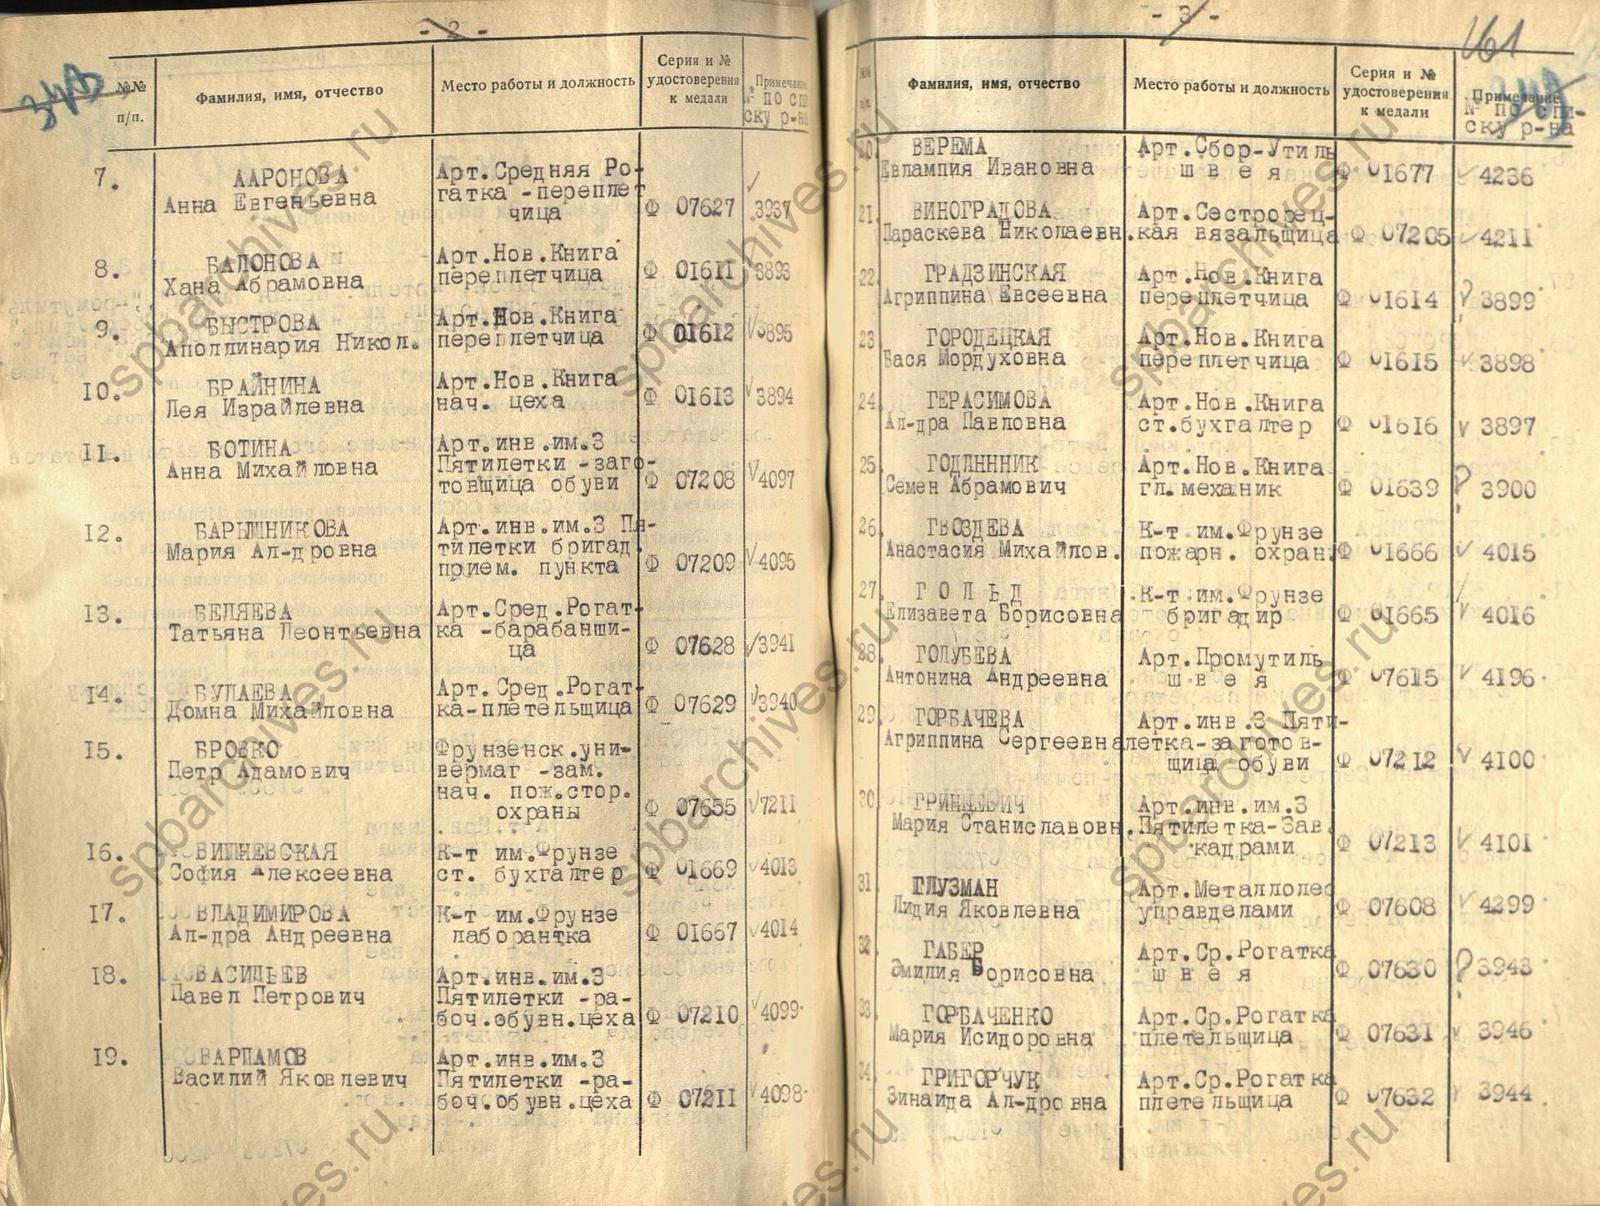 - 2 -
№№ п/п.
Фамилия, имя, отчество
Место работы и должность
Серия и № удостоверения к медали
Примечание № по списку р-на
7. ААРОНОВА Арт.Средняя Ро-
Анна Евгеньевна гатка -переплет
чица Ф 07627 3937
8. БАЛОНОВА Арт.Нов.Книга
Хана Абрамовна переплетчица Ф 01611 3893
9. БЫСТРОВА Арт.Нов.Книга
Аполлинария Никол. переплетчица Ф 01612 3895
10. БРАЙНИНА Арт.Нов.Книга
Лея Израйлевна нач. цеха Ф 01613 3894
11. БОТИНА Арт.инв.им.3
Анна Михайловна Пятилетки -заго-
товщица обуви Ф 07208 4097
12. БАРЫШНИКОВА Арт.инв.им.3 Пя-
Мария Ал-дровна тилетки бригад.
прием. пункта Ф 07209 4095
13. БЕЛЯЕВА Арт.Сред.Рогат-
Татьяна Леонтьевна ка -барабанши-
ца Ф 07628 3941
14. БУЛАЕВА Арт.Сред.Рогат-
Домна Михайловна ка-плетельщица Ф 07629 3940
15. БРОВКО Фрунзенск.уни-
Петр Адамович вермаг -зам.
нач. пож.стор.
охраны Ф 07655 7211
16. ВИШНЕВСКАЯ К-т им.Фрунзе
София Алексеевна ст. бухгалтер Ф 01669 4013
17. ВЛАДИМИРОВА К-т им.Фрунзе
Ал-дра Андреевна лаборантка Ф 01667 4014
18. ВАСИЛЬЕВ Арт.инв.им.3
Павел Петрович Пятилетки -ра-
боч.обувн.цеха Ф 07210 4099
19. ВАРЛАМОВ Арт.инв.им.3
Василий Яковлевич Пятилетки -ра-
боч.обувн.цеха Ф 07211 4098
- 3 -
161
Фамилия, имя, отчество
Место работы и должность
Серия и № удостоверения к медали
Примечание № по спи- ску р-на
20. ВЕРЕМА Арт.Сбор-Утиль
Евлампия Ивановна ш в е я Ф 01677 4236
21. ВИНОГРАДОВА Арт.Сестрорец-
Параскева Николаевн. кая вязальщица Ф 07205 4211
22. ГРАДЗИНСКАЯ Арт.Нов.Книга
Агриппина Евсеевна переплетчица Ф 01614 ? 3899
23 ГОРОДЕЦКАЯ Арт.Нов.Книга
Бася Мордуховна переплетчица Ф 01615 3898
24 ГЕРАСИМОВА Арт.Нов.Книга
Ал-дра Павловна ст.бухгалтер Ф 01616 3897
25 ГОДЛННИК Арт.Нов.Книга
Семен Абрамович гл.механик Ф 01639 ? 3900
26 ГВОЗДЕВА К-т им.Фрунзе
Анастасия Михайлов. пожарн. охран. Ф 01666 4015
27. Г О Л Ь Д К-т им.Фрунзе
Елизавета Борисовна бригадир Ф 01665 4016
28 ГОЛУБЕВА Арт.Промутиль
Антонина Андреевна ш в е я Ф 07615 4196
29. ГОРБАЧЕВА Арт.инв.3 Пяти-
Агриппина Сергеевна летка-заготов-
щица обуви Ф 07212 4100
30 ГРИНЦЕВИЧ Арт.инв.им.3
Мария Станиславовн. Пятилетка-Зав.
кадрами Ф 07213 4101
31 ГЛУЗМАН Арт.Металлолес
Лидия Яковлевна управделами Ф 07608 4299
32 ГАБЕР Арт.Ср.Рогатка
Эмилия Борисовна ш в е я Ф 07630 ? 3943
33 ГОРБАЧЕНКО Арт.Ср.Рогатка
Мария Исидоровна плетельщица Ф 07631 3946
34 ГРИГОРЧУК Арт.Ср.Рогатка
Зинаида Ал-дровна плетельщица Ф 07632 3944
spbarchives.ru